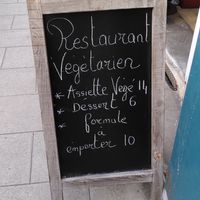 Restaurant
Végétarien
* Assiette Végé 14
* Dessert 6
* formule
à
emporter 10